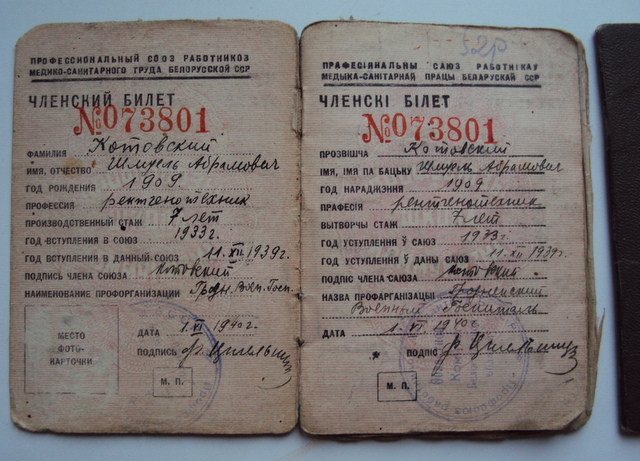 ПРОФЕССИОНАЛЬНЫЙ СОЮЗ РАБОТНИКОВ
МЕДИКО-САНИТАРНОГО ТРУДА БЕЛОРУССКОЙ ССР
ЧЛЕНСКИЙ БИЛЕТ
№073801
ФАМИЛИЯ Котовский
ИМЯ, ОТЧЕСТВО Шмуель Абрамович
ГОД РОЖДЕНИЯ 1909
ПРОФЕССИЯ рентгенотехник
ПРОИЗВОДСТВЕННЫЙ СТАЖ 7 лет
ГОД ВСТУПЛЕНИЯ В СОЮЗ 1933г.
ГОД ВСТУПЛЕНИЯ В ДАННЫЙ СОЮЗ 11.XII.1939г.
ПОДПИСЬ ЧЛЕНА СОЮЗА Котовский
НАИМЕНОВАНИЕ ПРОФОРГАНИЗАЦИИ Гродн. Воен. Госп.
МЕСТО
ФОТО-
КАРТОЧКИ
ДАТА 1.VI 1940г.
ПОДПИСЬ
М. П.
52р
ПРАФЕСІЯНАЛЬНЫ САЮЗ РАБОТНІКАУ
МЕДЫКА-САНІТАРНАЙ ПРАЦЫ БЕЛАРУСКАЙ ССР
ЧЛЕНСКІ БІЛЕТ
№073801
ПРОЗВІШЧА Котовский
ІМЯ, ІМЯ ПА БАЦЬКУ Шмуель Абрамович
ГОД НАРАДЖЭННЯ 1909
ПРАФЕСІЯ рентгенотехник
ВЫТВОРЧЫ СТАЖ 7 лет
ГОД УСТУПЛЕННЯ Ў САЮЗ 1933г.
ГОД УСТУПЛЕННЯ Ў ДАНЫ САЮЗ 11.XII.1939г.
ПОДПІС ЧЛЕНА САЮЗА Котовский
НАЗВА ПРОФАРГАНІЗАЦЫІ Гродненский
Военный Госпиталь
ДАТА 1.VI.1940г.
ПОДПІС
М. П.